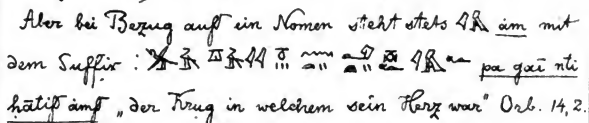 Aber bei Bezug auf ein Nomen steht stets am mit
dem Suffix : pa gaï nti
hātif amf „der Krug in welchem sein Herz war" Orb. 14,2.